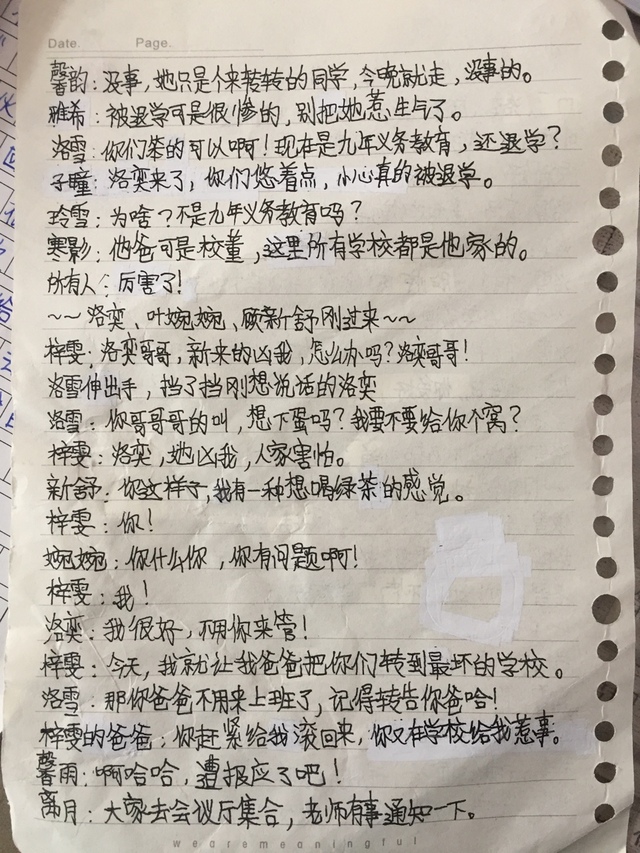 Date. Page.
馨韵：没事，她只是个来转转的同学，今晚就走，没事的。
雅希：被退学可是很惨的，别把她惹生气了。
洛雪：你们笨的可以啊！现在是九年义务教育，还退学？
子瞳：洛奕来了，你们悠着点，小心真的被退学。
玲雪：为啥？不是九年义务教育吗？
寒影：他爸可是校董，这里所有学校都是他家的。
所有人：厉害了！
~~洛奕、叶婉婉、顾新舒刚过来~~
梓雯：洛奕哥哥，新来的凶我，怎么办吗？洛奕哥哥！
洛雪伸出手，挡了挡刚想说话的洛奕
洛雪：你哥哥哥的叫，想下蛋吗？我要不要给你个窝？
梓雯：洛奕，她凶我，人家害怕。
新舒：你这样子，我有一种想喝绿茶的感觉。
梓雯：你！
婉婉：你什么你，你有问题啊！
梓雯：我！
洛奕：我很好，不用你来管！
梓雯：今天，我就让我爸爸把你们转到最坏的学校。
洛雪：那你爸爸不用来上班了，记得转告你爸哈！
梓雯的爸爸：你赶紧给我滚回来，你又在学校给我惹事。
馨雨：啊哈哈，遭报应了吧！
离月：大家去会议厅集合，老师有事通知一下。
wearemeaningful